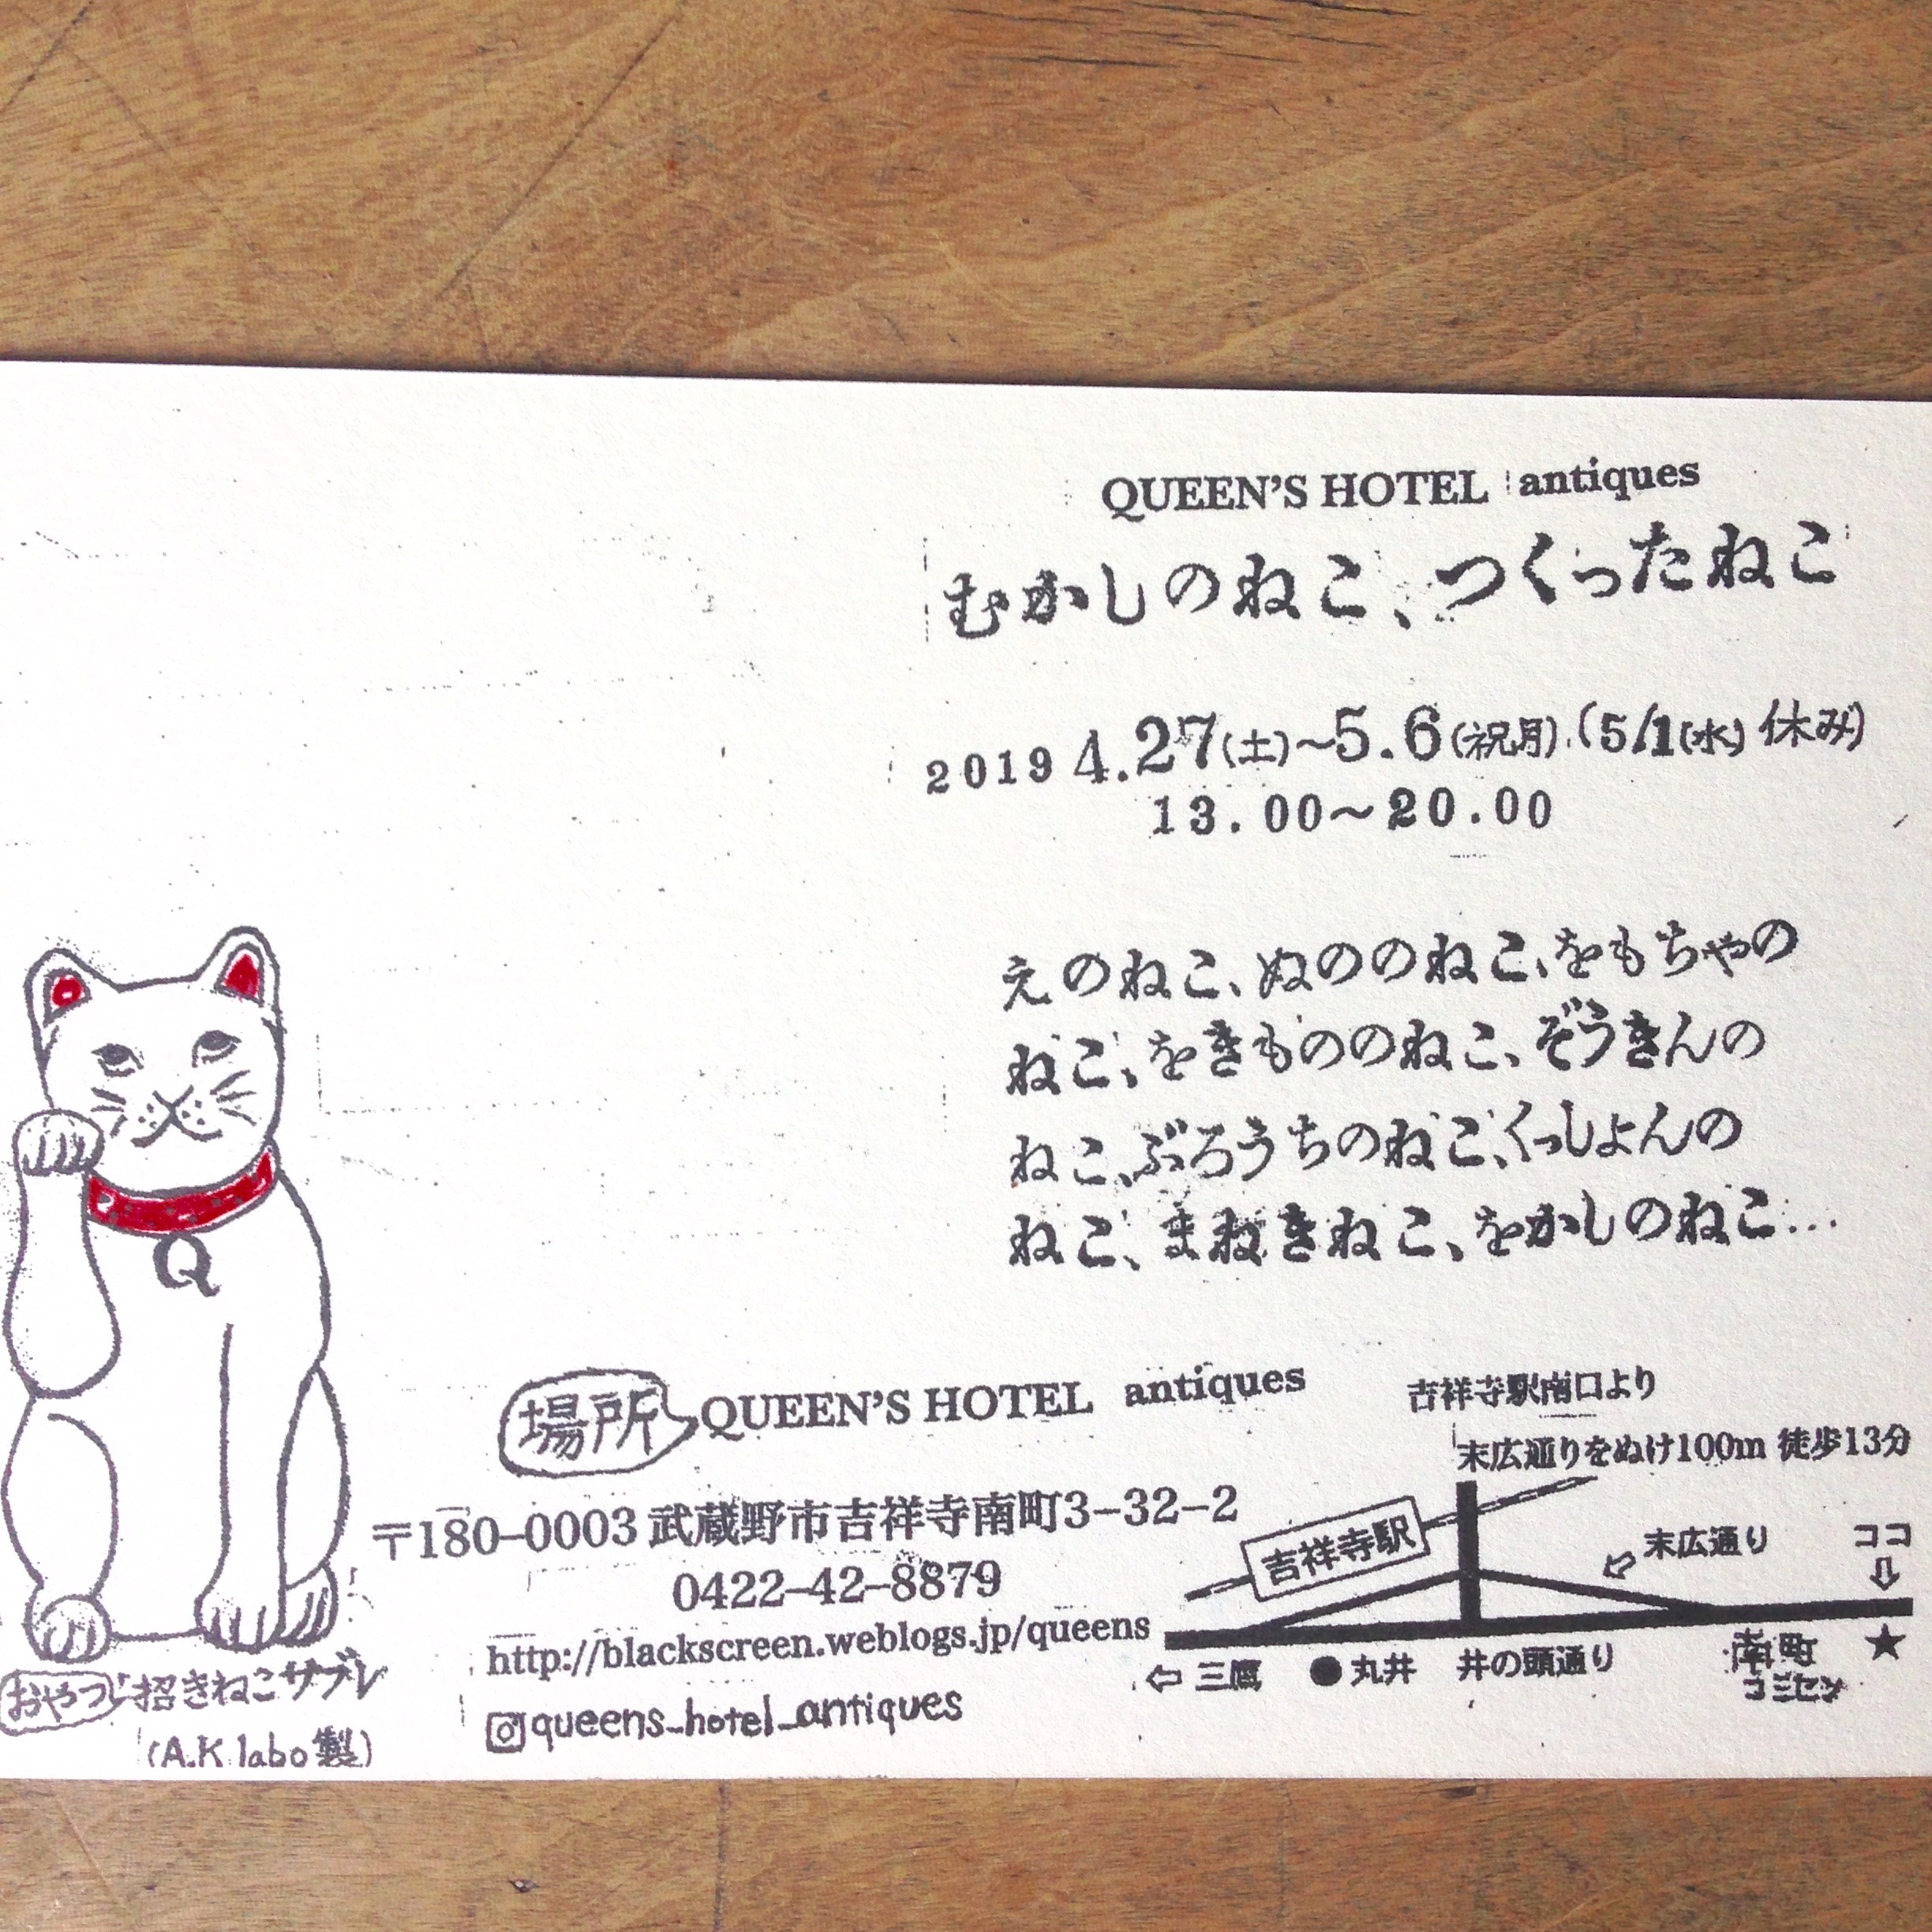 QUEEN'S HOTEL antiques
むかしのねこ、つくったねこ
2019 4.27(土)~5.6(祝月) (5/1(水) 休み)
13.00~20.00
えのねこ、ぬののねこ、をもちゃの
ねこ、をきもののねこ、ぞうきんの
ねこ、ぶろうちのねこ、くっしょんの
ねこ、まねきねこ、をかしのねこ...
Q
場所 QUEEN'S HOTEL antiques
〒180-0003 武蔵野市吉祥寺南町3-32-2
0422-42-8879
http://blackscreen.weblogs.jp/queens
queens_hotel_antiques
おやつ 招きねこサブレ
(A.K labo 製)
吉祥寺駅南口より
末広通りをぬけ100m 徒歩13分
吉祥寺駅
末広通り
ココ
⇦ 三鷹 ●丸井 井の頭通り 南町 ★
コミセン